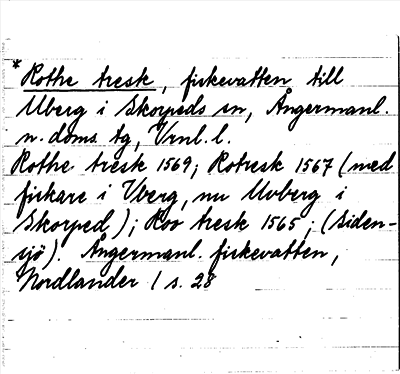 * Rothe tresk, fiskevatten till
Uberg i Skorpeds sn, Ångermanl.
n. doms. tg, Vrnl. l.
Rothe tresk 1569; Rotresk 1567 (med
fiskare i Vberg, nu Uvberg i
Skorped); Roo tresk 1565; (Siden-
sjö). Ångermanl. fiskevatten,
Nordlander 1 s. 28